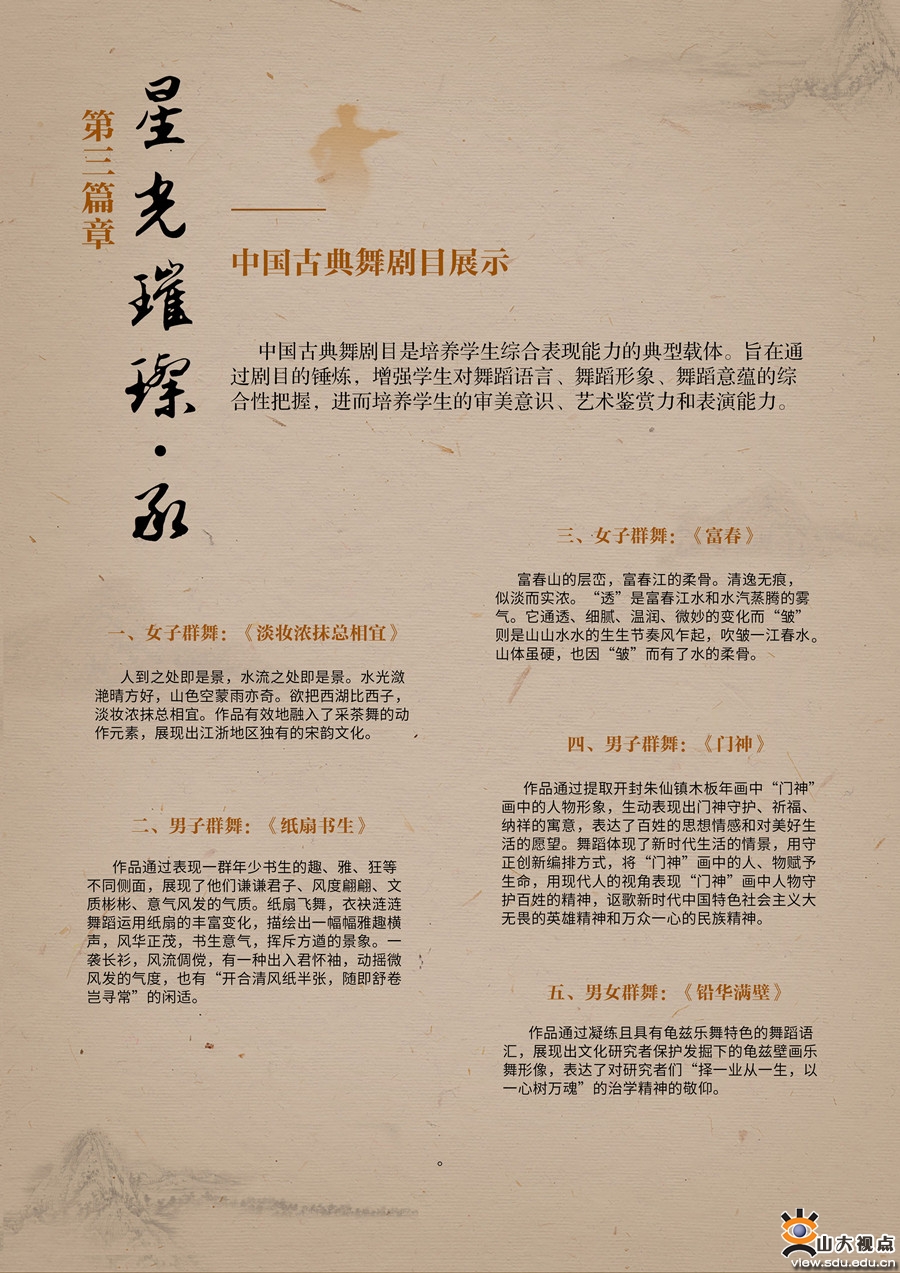 第三篇章
星光璀璨·承
中国古典舞剧目展示
中国古典舞剧目是培养学生综合表现能力的典型载体。旨在通
过剧目的锤炼，增强学生对舞蹈语言、舞蹈形象、舞蹈意蕴的综
合性把握，进而培养学生的审美意识、艺术鉴赏力和表演能力。
一、女子群舞：《淡妆浓抹总相宜》
人到之处即是景，水流之处即是景。水光潋
滟晴方好，山色空蒙雨亦奇。欲把西湖比西子，
淡妆浓抹总相宜。作品有效地融入了采茶舞的动
作元素，展现出江浙地区独有的宋韵文化。
二、男子群舞：《纸扇书生》
作品通过表现一群年少书生的趣、雅、狂等
不同侧面，展现了他们谦谦君子、风度翩翩、文
质彬彬、意气风发的气质。纸扇飞舞，衣袂涟涟
舞蹈运用纸扇的丰富变化，描绘出一幅幅雅趣横
声，风华正茂，书生意气，挥斥方道的景象。一
袭长衫，风流倜傥，有一种出入君怀袖，动摇微
风发的气度，也有“开合清风纸半张，随即舒卷
岂寻常”的闲适。
三、女子群舞：《富春》
富春山的层峦，富春江的柔骨。清逸无痕，
似淡而实浓。“透”是富春江水和水汽蒸腾的雾
气。它通透、细腻、温润、微妙的变化而“皱”
则是山山水水的生生节奏风乍起，吹皱一江春水。
山体虽硬，也因“皱”而有了水的柔骨。
四、男子群舞：《门神》
作品通过提取开封朱仙镇木板年画中“门神”
画中的人物形象，生动表现出门神守护、祈福、
纳祥的寓意，表达了百姓的思想情感和对美好生
活的愿望。舞蹈体现了新时代生活的情景，用守
正创新编排方式，将“门神”画中的人、物赋予
生命，用现代人的视角表现“门神”画中人物守
护百姓的精神，讴歌新时代中国特色社会主义大
无畏的英雄精神和万众一心的民族精神。
五、男女群舞：《铅华满壁》
作品通过凝练且具有龟兹乐舞特色的舞蹈语
汇，展现出文化研究者保护发掘下的龟兹壁画乐
舞形像，表达了对研究者们“择一业从一生，以
一心树万魂”的治学精神的敬仰。
。
山大视点
view.sdu.edu.cn